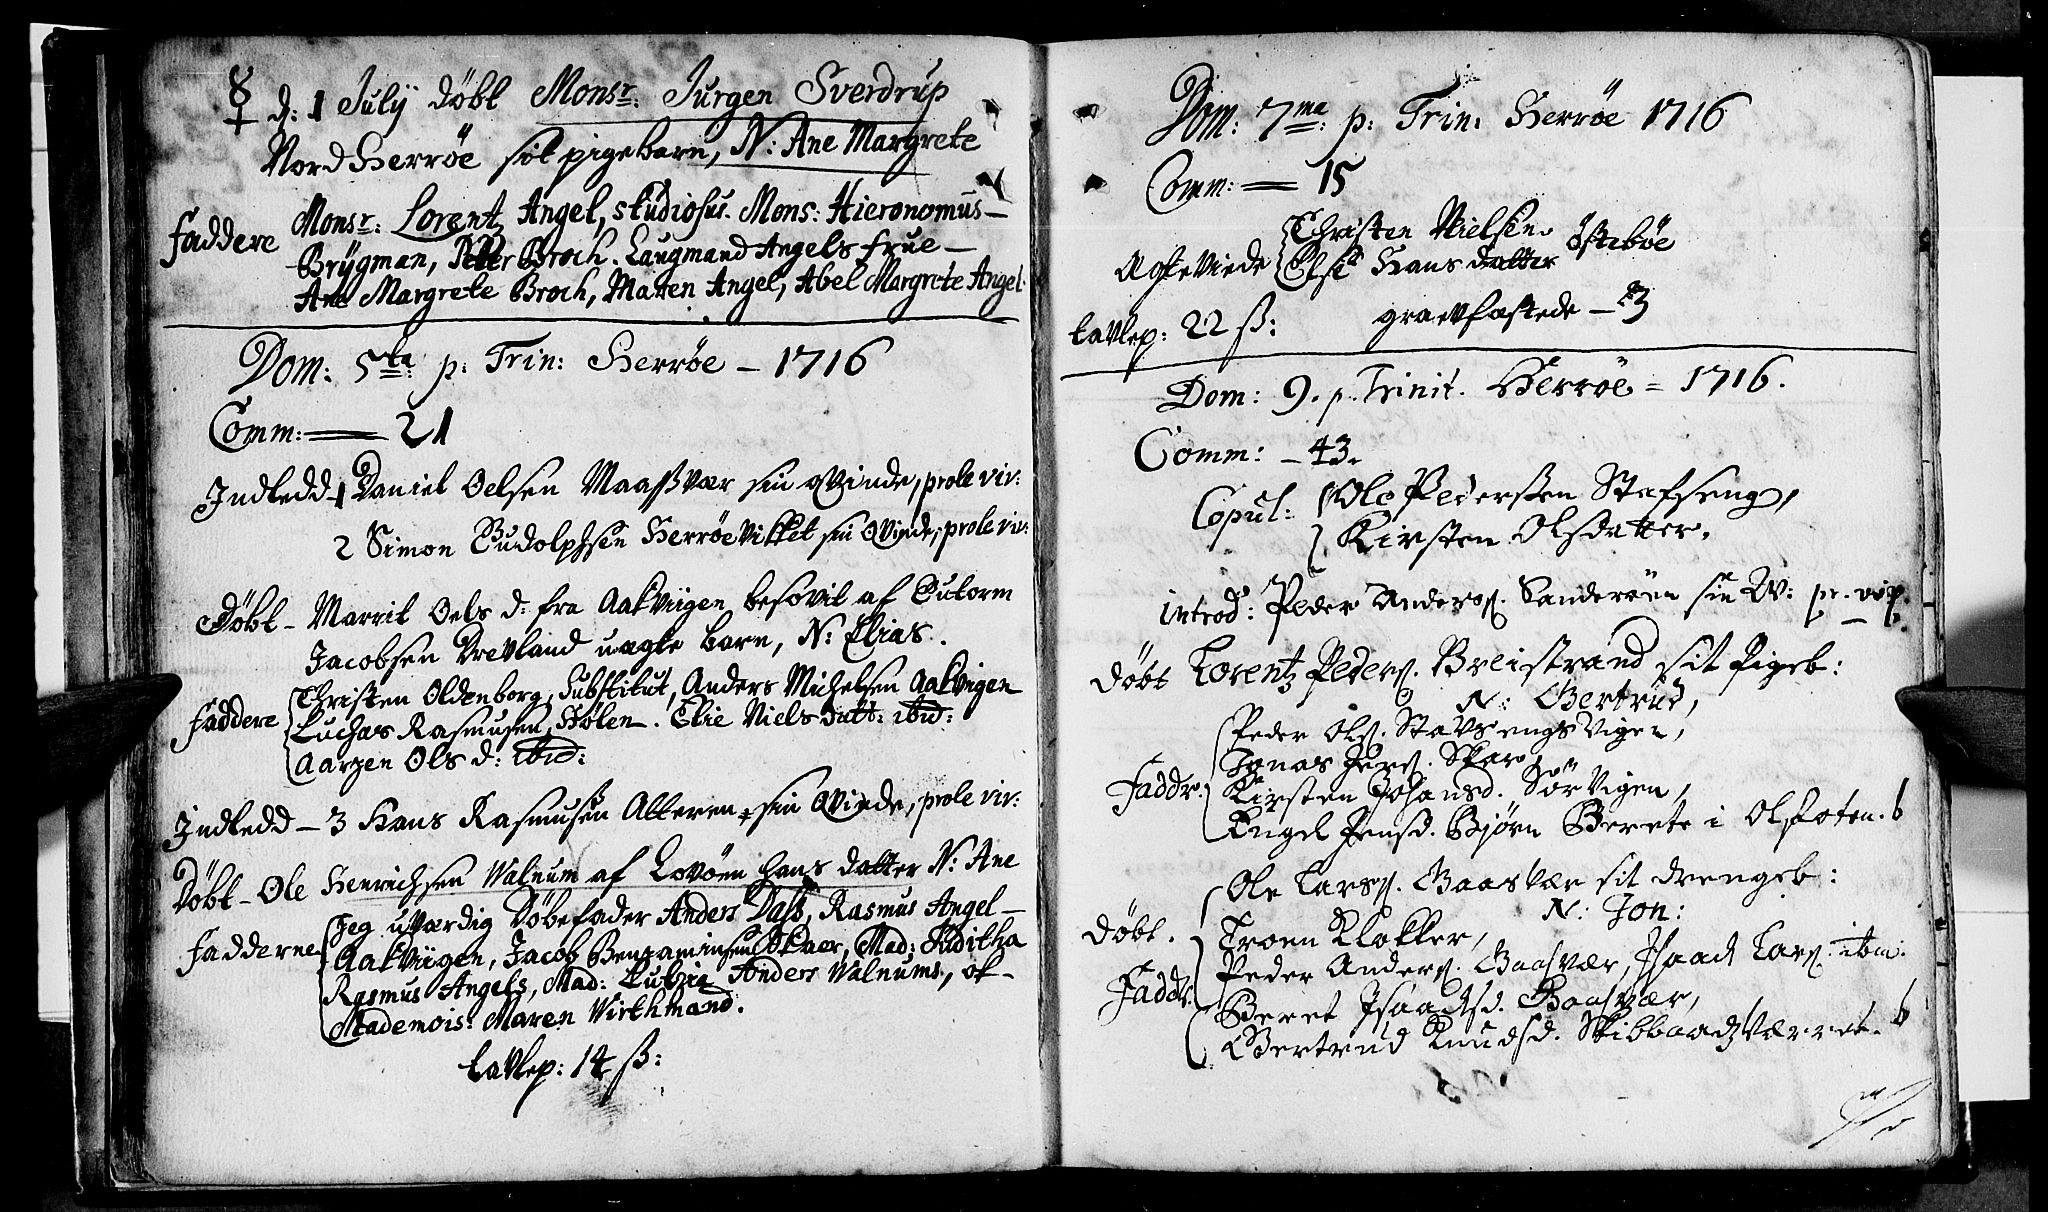 ♀ d: 1 Julÿ døbt Monsr: Jurgen Sverdrup
Nord Herrøe sit pigebarn, N: Ane Margrete
Faddere Monsr: Lorentz Angel, studiosus. Mons: Hieronomus
Brÿgman, Peter Broch. Laugmand Angels frue
Ane Margrete Broch, Maren Angel, Abel Margrete Angel.
Dom: 5ta p: Trin: Herrøe - 1716
Comm: — 21
Indledd - 1 Daniel Oelsen Maaßvær sin qvinde, prole viv:
2 Simon Rudolphsen Herrøe Vikket sin qvinde, prole viv:
Døbt - Marrit Oels d: fra Aakviigen besovit af Gutorm
Jacobsen Drevland uægte barn, N: Elias.
Faddere Christen Oldenborg, Substitut, Anders Michelsen Aakvigen
Luchas Rasmusen, Hølen. Elie Niels datt: ibid:
Aargen Ols d: ibid:
Indledd - 3 Hans Rasmusen Alteren sin qvinde, prole viv:
Døbt - Ole Henrichsen Walnum af Lovøen hans datter N: Ane
Fadderne Jeg uværdig Døbefader Anders Dass, Rasmus Angel
Aakviigen, Jacob Benjaminsen Skaer, Mad: Juditha
Rasmus Angels, Mad: Ludzia Anders Walnums, ok
Mademois: Maren Wirthmand.
tavlep: 14 ß:
Dom: 7me: p: Trin: Herrøe 1716
Comm: — 15
Ægteviede Christen Nielsen
Else Hans datter Østebøe
tavlep: 22 ß: graevfæstede - 3
Dom: 9. p. Trinit. Herrøe = 1716.
Comm: - 43.
Copul: Ole Pedersßen Stafseng,
Kirsten Olsdatter.
introd: Peder Anders. Sanderøen sin W: pr. vip.
døbt Lorentz Peders. Breistrand sit Pigeb:
N: Gertrud,
Peder Ols. Stavsengs Vigen,
Jonas Jens. Skar,
Faddr: Kirsten Johansd. Sør Vigen,
Engel Jensd. Bjørn Berete i Olstoten. b
Ole Lars. Baasvær sit drengeb:
N: Jon:
døbt. Troen Klokker,
Peder Anders. Baasvær, Isaach Lars. ibm.
Faddr: Beret Isaachsd. Baasvær,
Gertrud Knudsd. Skibbaadsværret. b